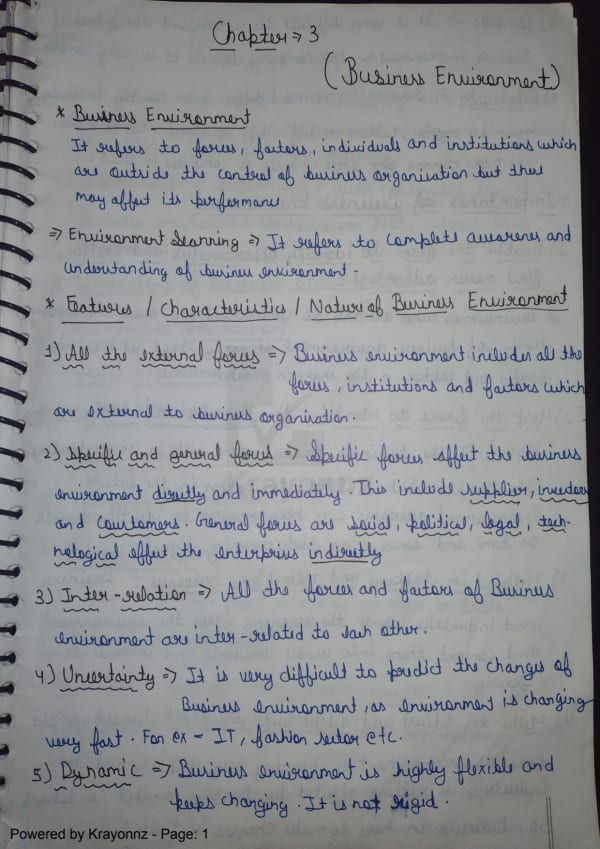 Chapter → 3
(Business Environment)
* Business Environment
It refers to forces, factors, individuals and institutions which
are outside the control of business organisation but these
may affect its performance
⇒ Environment Scanning ⇒ It refers to complete awareness and
understanding of business environment.
* Features / Characteristics / Nature of Business Environment
1) All the external forces ⇒ Business environment includes all the
forces, institutions and factors which
are external to business organisation.
2) Specific and general forces ⇒ Specific forces affect the business
environment directly and immediately. This include supplier, investors
and coustomers. General forces are social, political, legal, tech-
nological effect the enterprises indirectly
3) Inter-relation ⇒ All the forces and factors of Business
environment are inter-related to each other.
4) Uncertainty ⇒ It is very difficult to predict the changes of
Business environment, as environment is changing
very fast. For ex - IT, fashion sector etc.
5) Dynamic ⇒ Business environment is highly flexible and
keeps changing. It is not rigid.
Powered by Krayonnz - Page: 1